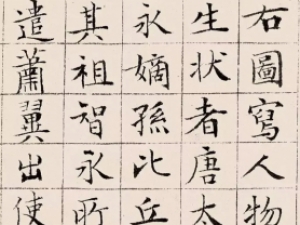 右圖寫人物
生状者唐太
永嫡孫比丘
其祖智永所
遣蕭翼出使